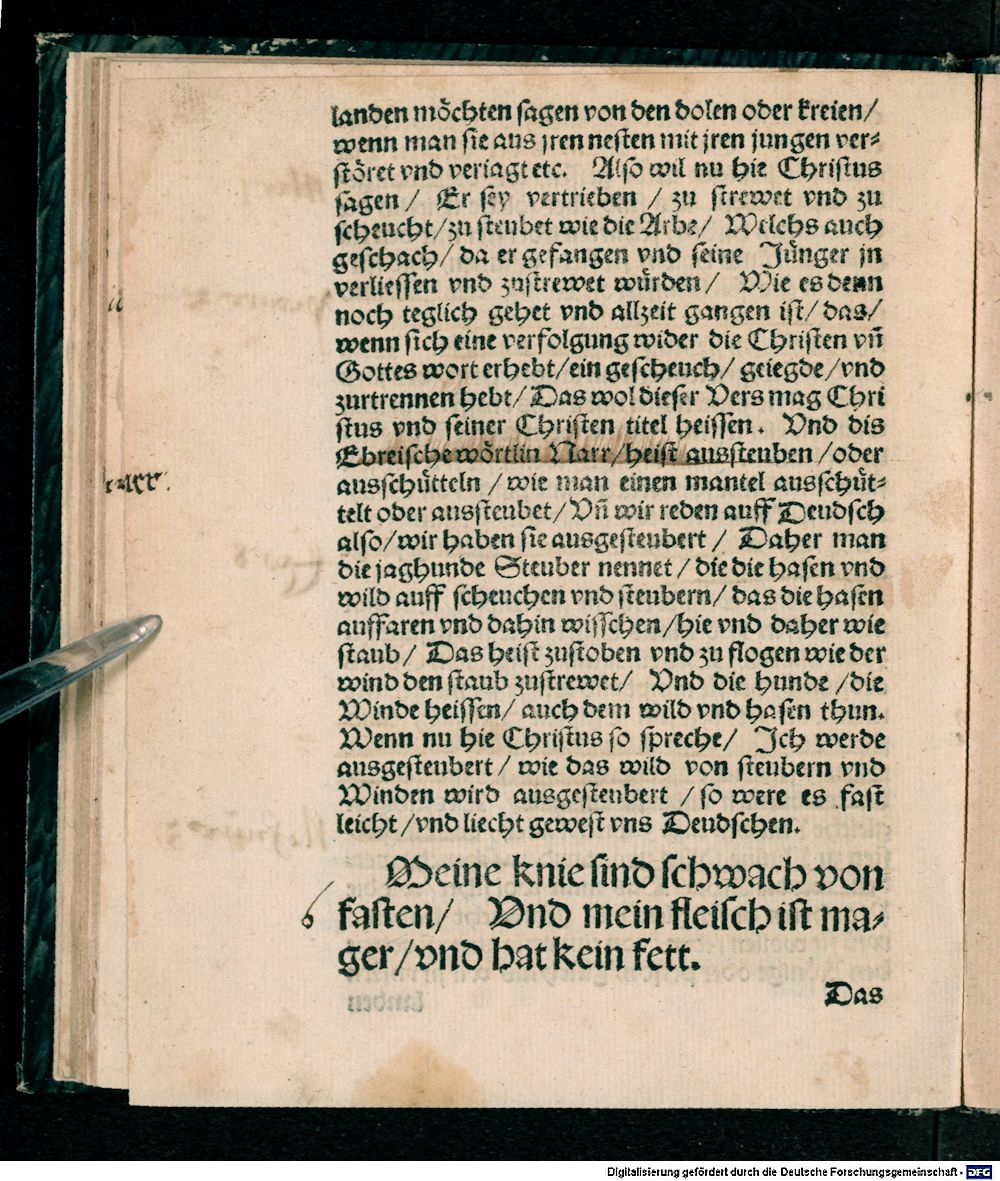 landen möchten sagen von den dolen oder kreien/
wenn man sie aus jren nesten mit jren jungen ver⸗
störet vnd veriagt etc. Also wil nu hie Christus
sagen/ Er sey vertrieben / zu strewet vnd zu
scheucht/zu steubet wie die Arbe/ Welchs auch
geschach/ da er gefangen vnd seine Jünger jn
verliessen vnd zustrewet würden/ Wie es denn
noch teglich gehet vnd allzeit gangen ist/ das/
wenn sich eine verfolgung wider die Christen vñ
Gottes wort erhebt/ein gescheuch/ geiegde/vnd
zurtrennen hebt/ Das wol dieser Vers mag Chri
stus vnd seiner Christen titel heissen. Vnd dis
Ebreische wörtlin Narr/heist aussteuben /oder
ausschütteln /wie man einen mantel ausschüt⸗
telt oder aussteubet/Vñ wir reden auff Deudsch
also/wir haben sie ausgesteubert / Daher man
die jaghunde Steuber nennet /die die hasen vnd
wild auff scheuchen vnd steubern/ das die hasen
auffaren vnd dahin wisschen/hie vnd daher wie
staub/ Das heist zustoben vnd zu flogen wie der
wind den staub zustrewet/ Vnd die hunde /die
Winde heissen/ auch dem wild vnd hasen thun.
Wenn nu hie Christus so spreche/ Ich werde
ausgesteubert / wie das wild von steubern vnd
Winden wird ausgesteubert /so were es fast
leicht /vnd liecht gewest vns Deudschen.
Meine knie sind schwach von
6 fasten/ Vnd mein fleisch ist ma⸗
ger/vnd hat kein fett.
Das
Digitalisierung gefördert durch die Deutsche Forschungsgemeinschaft - DFG